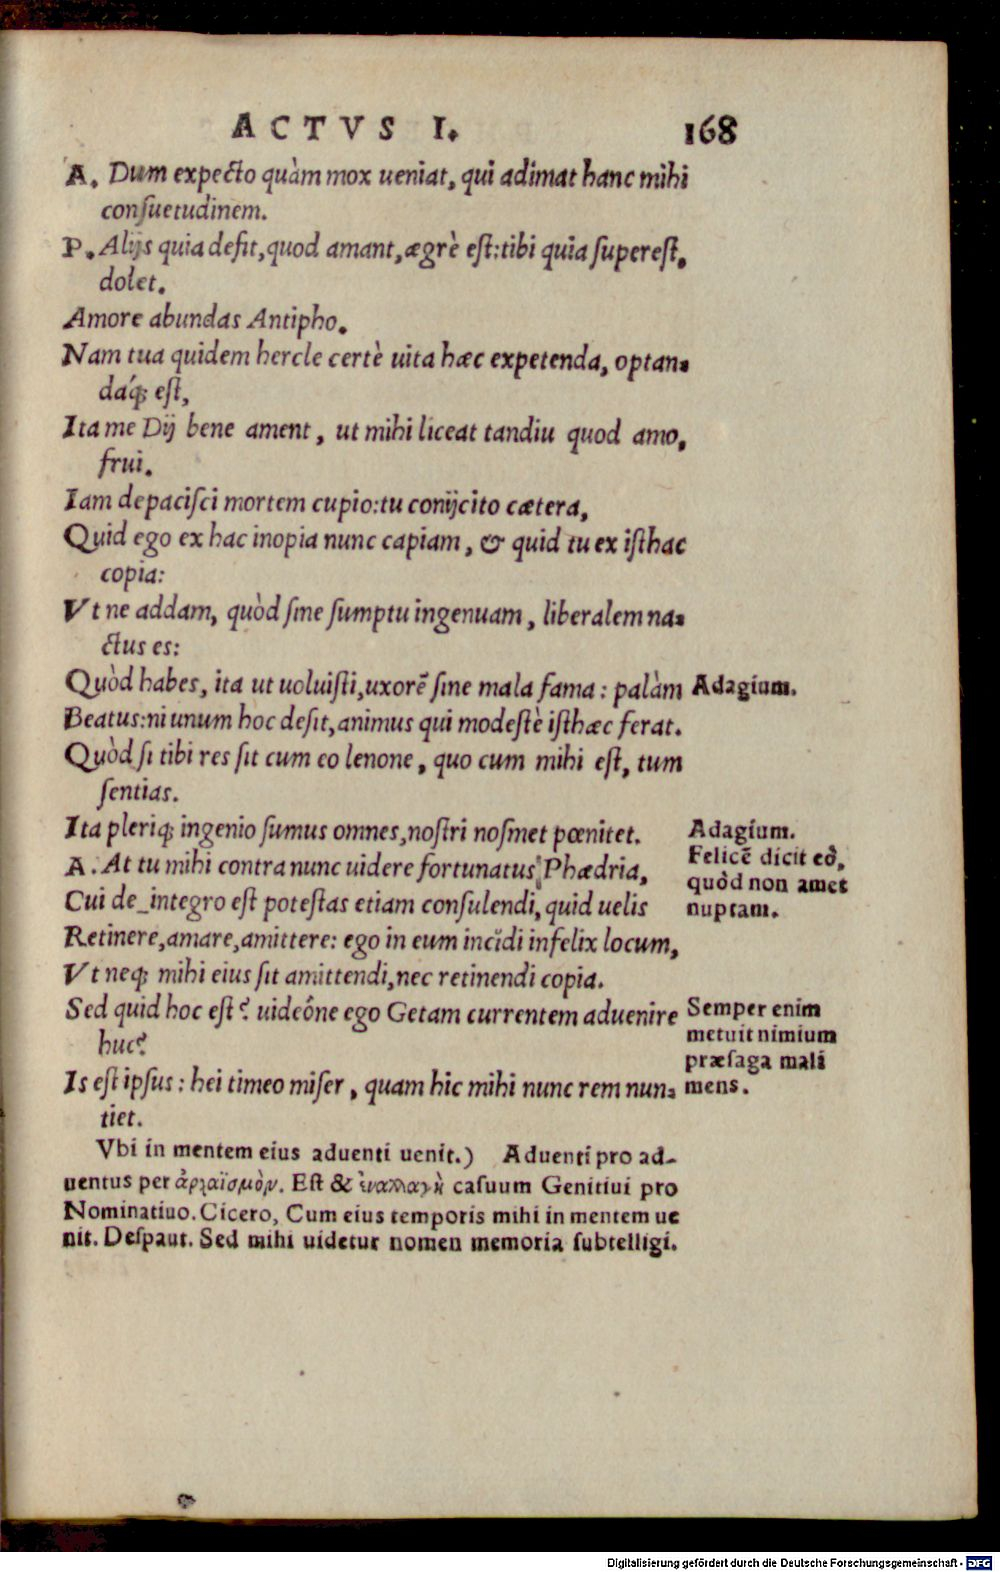 ACTVS I.
168
A. Dum expecto quàm mox ueniat, qui adimat hanc mihi
conſuetudinem.
P. Alijs quia defit, quod amant, ægrè eſt: tibi quia ſupereſt,
dolet.
Amore abundas Antipho.
Nam tua quidem hercle certè uita hæc expetenda, optan=
dáq; eſt,
Ita me Dij bene ament, ut mihi liceat tandiu quod amo,
frui.
Iam depaciſci mortem cupio: tu conijcito cætera,
Quid ego ex hac inopia nunc capiam, & quid tu ex iſthac
copia:
Vt ne addam, quòd ſine ſumptu ingenuam, liberalem na=
ctus es:
Quòd habes, ita ut uoluiſti, uxorẽ ſine mala fama: palàm
Adagium.
Beatus: ni unum hoc deſit, animus qui modeſtè iſthæc ferat.
Quòd ſi tibi res ſit cum eo lenone, quo cum mihi eſt, tum
ſentias.
Ita pleriq; ingenio ſumus omnes, noſtri noſmet pœnitet.
Adagium.
A. At tu mihi contra nunc uidere fortunatus Phædria,
Felicẽ dicit eò,
quòd non amet
nuptam.
Cui de_integro eſt poteſtas etiam conſulendi, quid uelis
Retinere, amare, amittere: ego in eum incidi infelix locum,
Vt neq; mihi eius ſit amittendi, nec retinendi copia.
Sed quid hoc eſt? uideóne ego Getam currentem aduenire
huc?
Semper enim
metuit nimium
præſaga mali
mens.
Is eſt ipſus: hei timeo miſer, quam hic mihi nunc rem nun=
tiet.
Vbi in mentem eius aduenti uenit.) Aduenti pro ad-
uentus per ἀρχαϊσμὸν. Eſt & ἐναλλαγὴ caſuum Genitiui pro
Nominatiuo. Cicero, Cum eius temporis mihi in mentem ue
nit. Deſpaut. Sed mihi uidetur nomen memoria ſubtelligi.
Digitalisierung gefördert durch die Deutsche Forschungsgemeinschaft - DFG